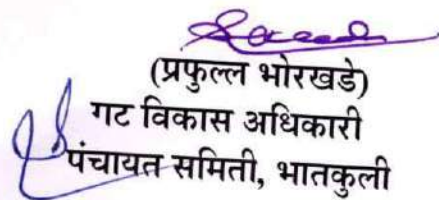 (प्रफुल्ल भोरखडे)
गट विकास अधिकारी
पंचायत समिती, भातकुली